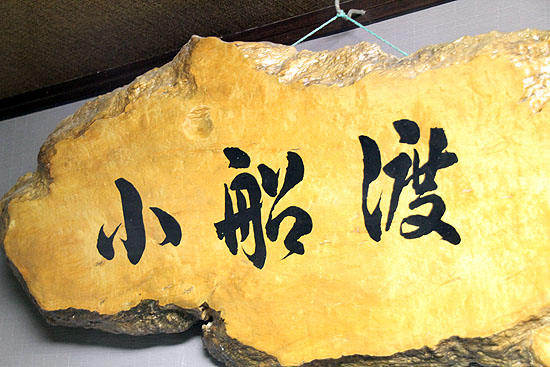 小船渡